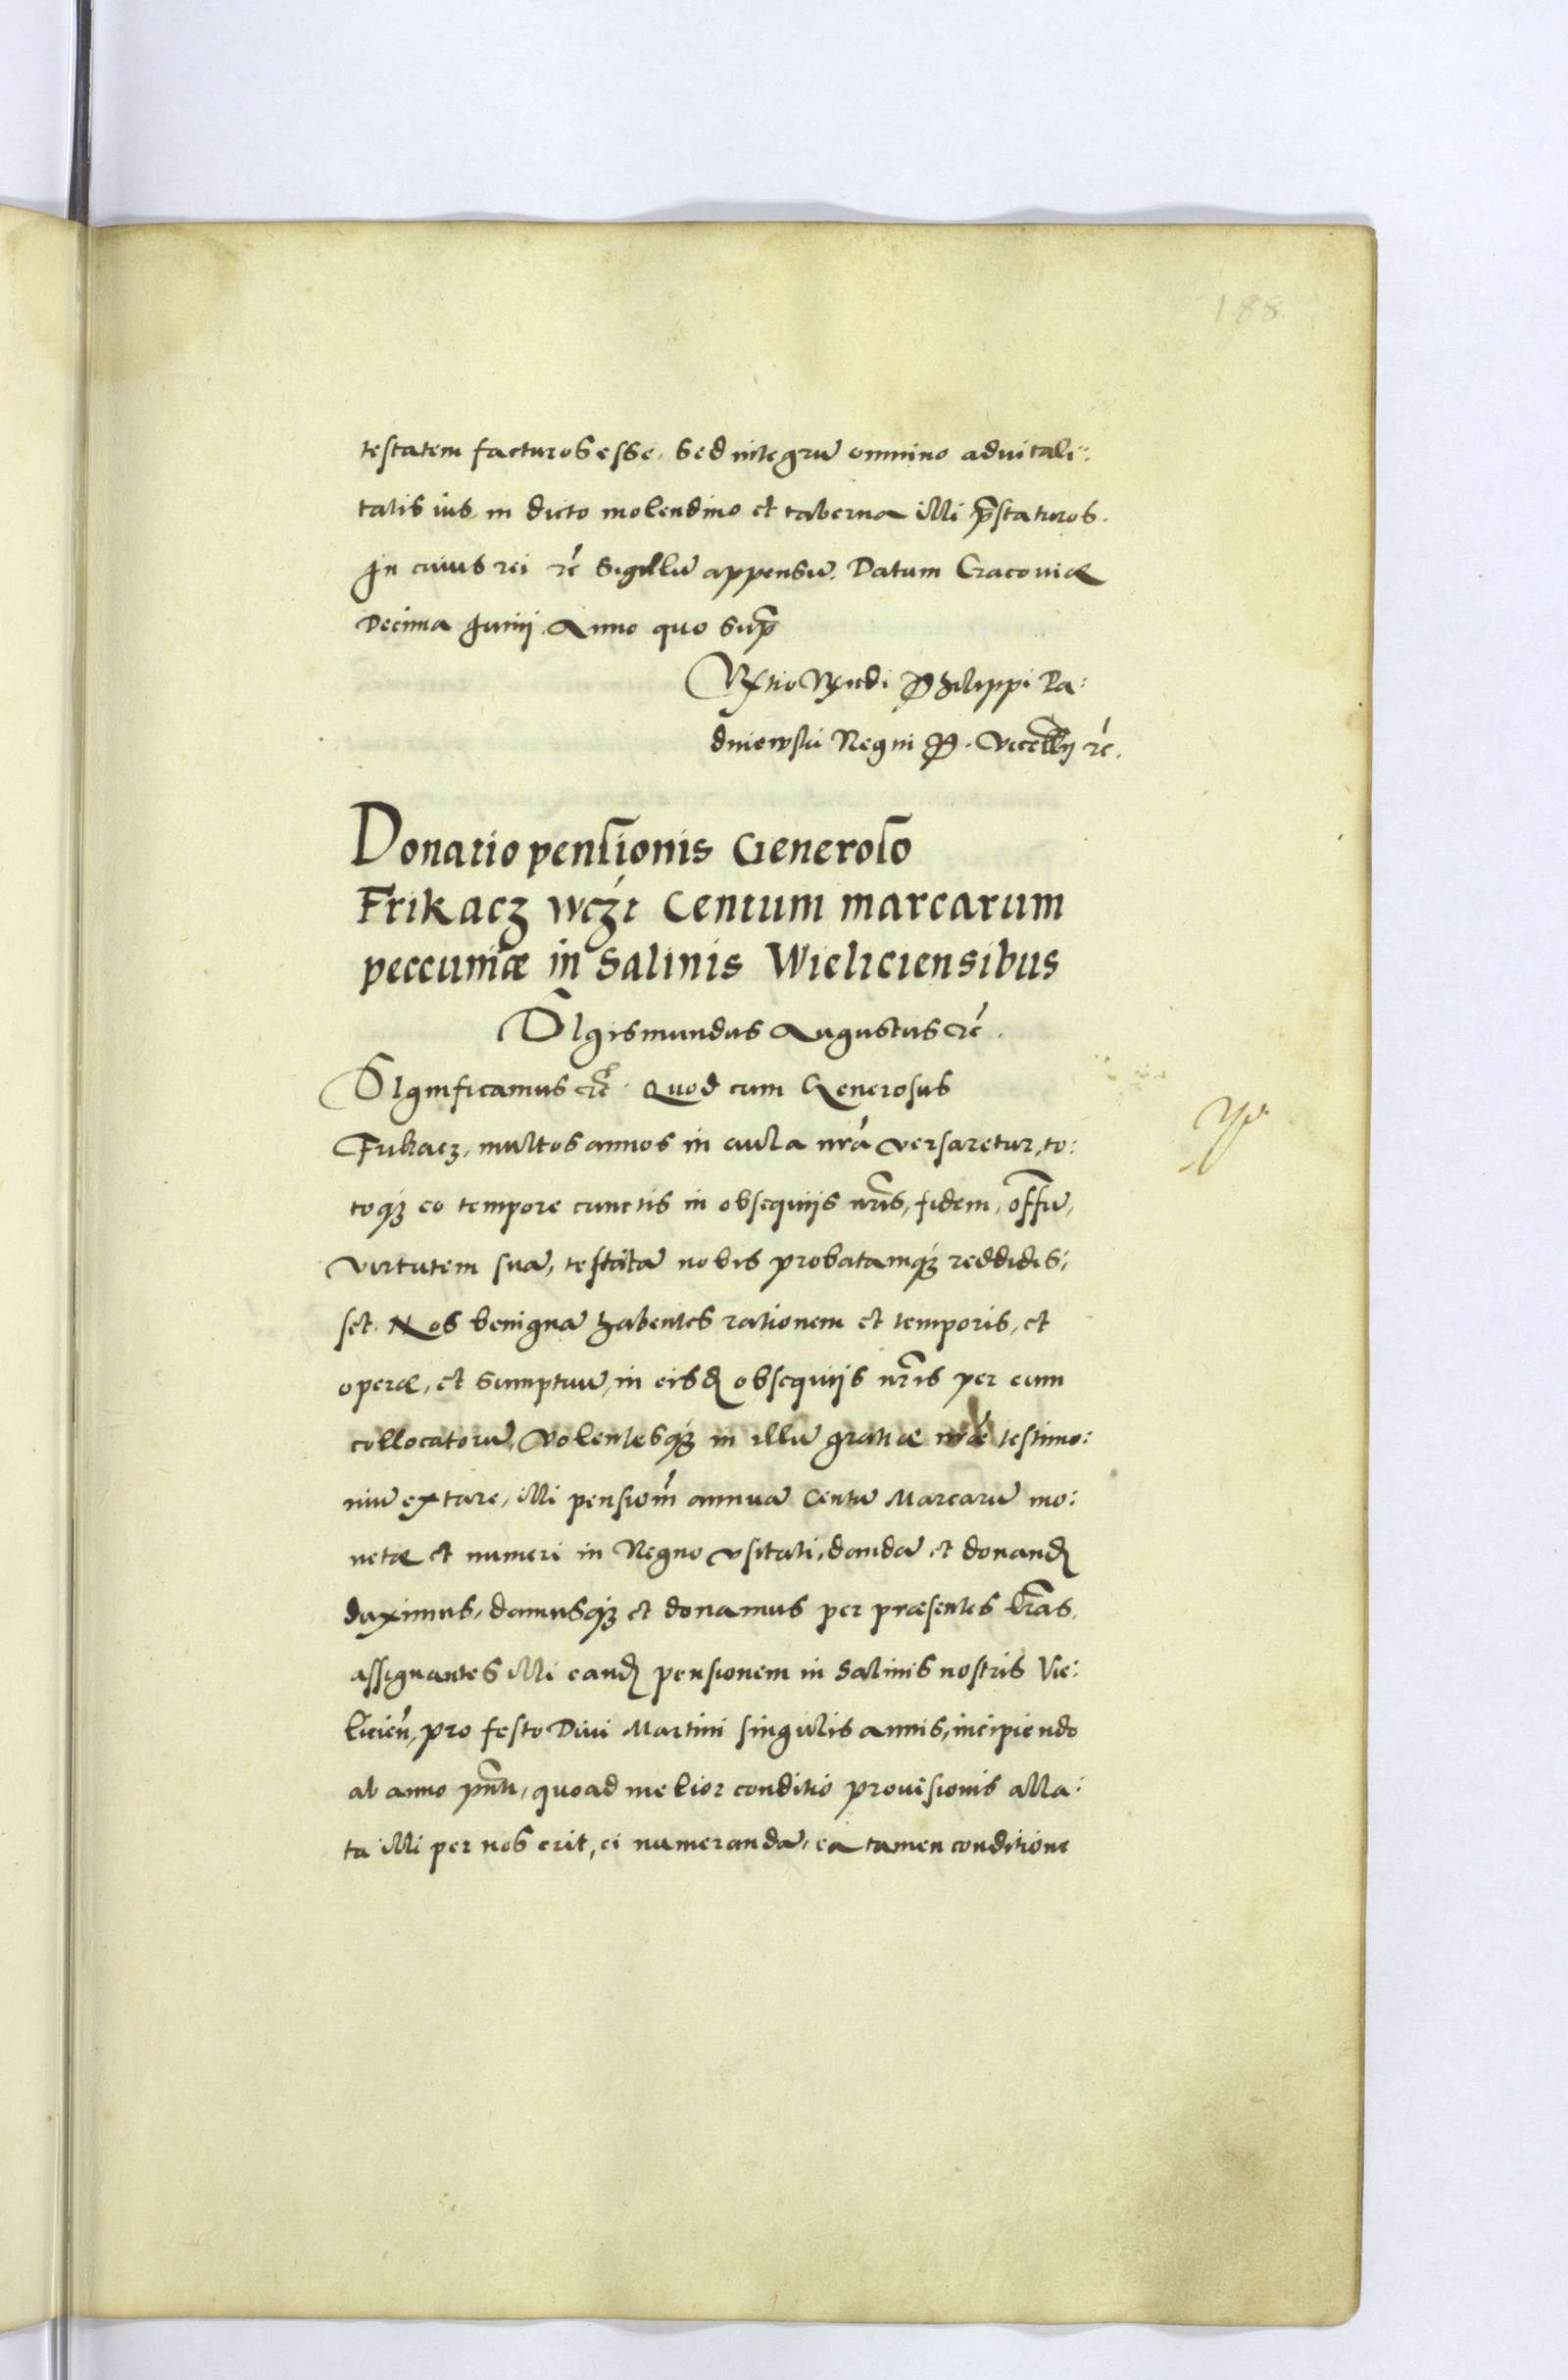 188
testatem facturos esse, sed integrũ omnino aduitali:
tatis ius in dicto molendino et taberna illi p̃staturos.
In cuius rei rć Sigillũ appensũ. Datum Cracoviæ
Decima Junij Anno quo sup̃
Rꝭtio Rṇdi Philippi Pa:
dniewski Regni P. Vicecãllrij rć.
Donatio pensionis Generoso
Frikacz wcźt Centum marcarum
peccuniæ in Salinis Wieliciensibus
SIgismundus Augustus rć.
SIgnificamus rć. Quod cum Generosus
Frikacz, multos annos in aula nrá versaretur, to:
toq́ꝫ eo tempore cunctis in obsequijs nr̃is, fidem, off̃iũ,
virtutem suã, testatã nobis probatamq́ꝫ reddidis:
set. Nos benignã habentes rationem et temporis, et
operæ, et sumptuũ, in eisđ obsequijs nr̃is per eum
collocatorũ, Volentesq́ꝫ in illũ gratiæ nrǽ testimo:
niũ extare, illi pensionḿ annuã Centũ Marcarũ mo:
netæ et numeri in Regno vsitati, dandã et donanđ
duximus, damusq́ꝫ et donamus per præsentes lr̃as,
assignantes illi eanđ pensionem in Salinis nostris Vie:
licień, pro festo Diui Martini singulis annis, incipiendo
ab anno pñti, quoad melior conditio prouisionis alla:
ta illi per nos erit, ei numerandã, ea tamen conditione